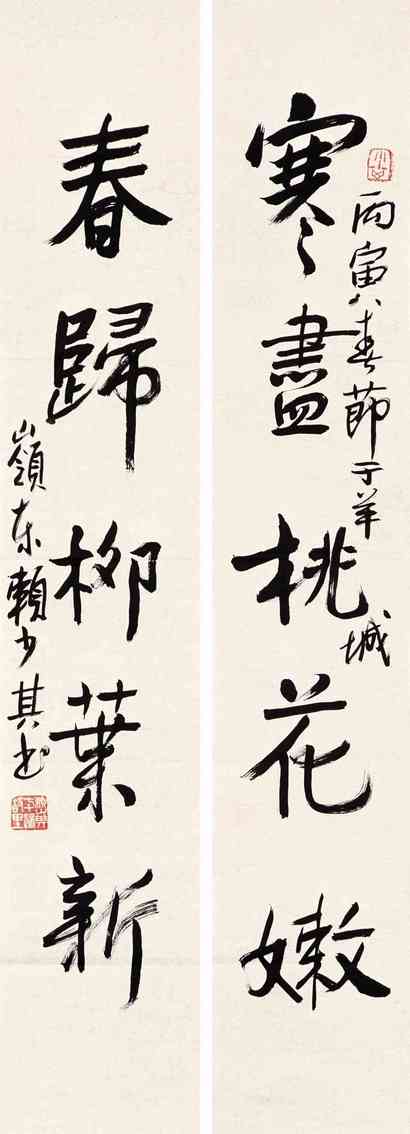 寒盡桃花嫩
丙寅八春節于羊城
春歸柳葉新
嶺東賴少其書